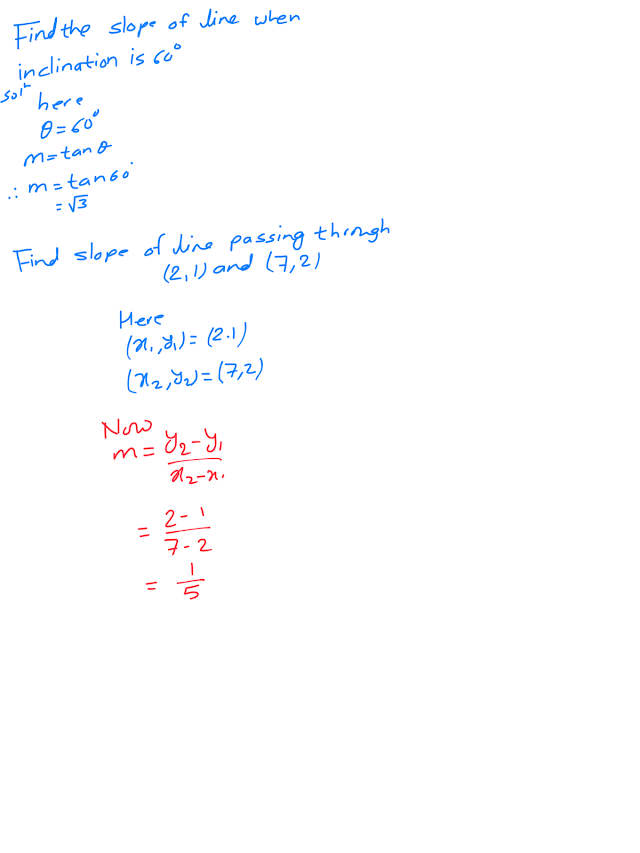 Find the slope of line when
inclination is 60°
solⁿ
here
θ = 60°
m = tan θ
∴ m = tan 60°
= √3
Find slope of line passing through
(2, 1) and (7, 2)
Here
(x₁, y₁) = (2.1)
(x₂, y₂) = (7, 2)
Now
m = y₂ - y₁
x₂ - x₁
= 2 - 1
7 - 2
= 1
5